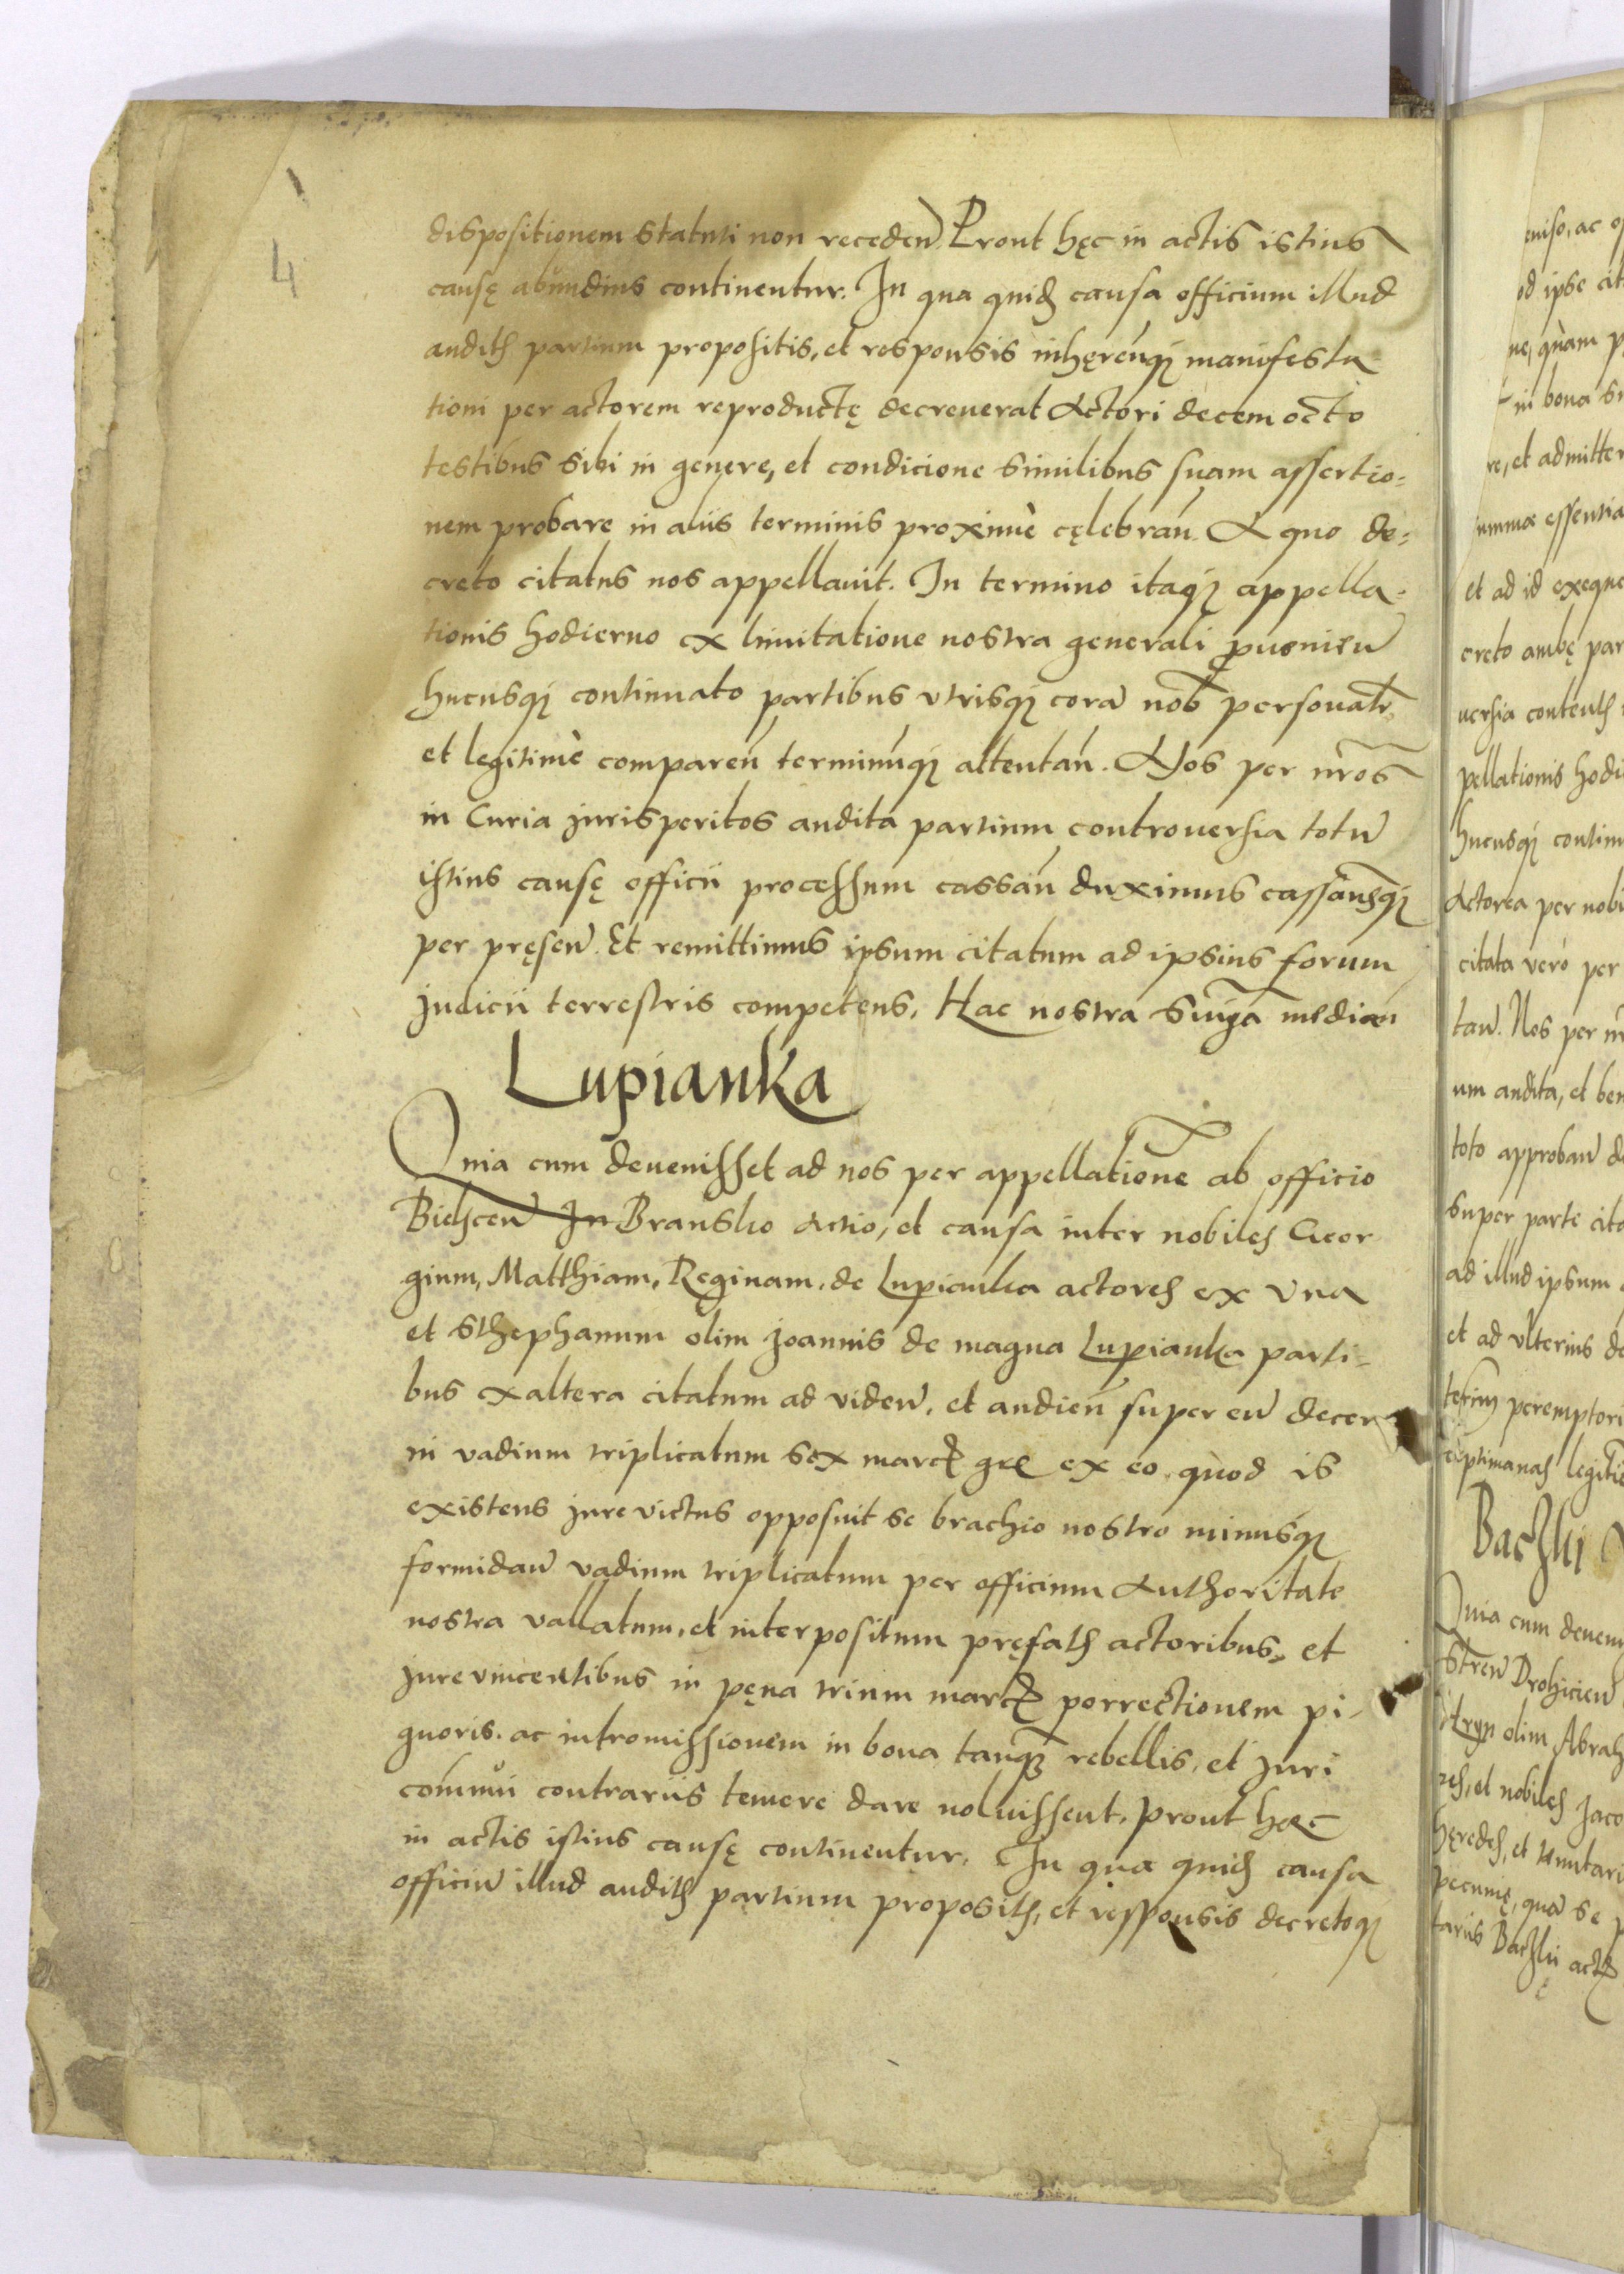 4
dispositionem statuti non receden̄. Prout hęc in actis istius
causę abundius continentur. In qua quid causa officium illud
auditis partium propositis, et responsis inhęren̄q₃ manifesta
tioni per actorem reproductę decreuerat Actori decem octo
testibus sibi in genere, et condicione similibus suam assertio-
nem probare in aliis terminis proximè cęlebran̄. A quo de-
creto citatus nos appellauit. In termino itaq₃ appella-
tionis hodierno ex limitatione nostra generali ꝓuenien̄
hucusq₃ continuato partibus vtrisq₃ corā nob̄ personalr̄
et legitimè comparen̄ terminūq₃ attentan̄. Nos per nr̄os
in Curia jurisperitos audita partium controuersia totū
istius causę officii processum cassan̄ duximus cassamusq₃
per pręsen̄. Et remittimus ipsum citatum ad ipsius forum
judicii terrestris competens, Hac nostra sn̄ia median̄
Lupianka
Quia cum deuenisset ad nos per appellationē ab officio
Bielscen̄ In Bransko Actio, et causa inter nobiles Geor
gium, Matthiam, Reginam, de Lupianka actores ex vna
et Sthephanum olim Joannis de magna Lupianka parti-
bus ex altera citatum ad viden̄, et audien̄ super eū decer
ni vadium triplicatum sex marc̄ gr̄ ex eo, quòd is
existens jure victus opposuit se brachio nostro minusq₃
formidan̄ vadium triplicatum per officium Authoritate
nostra vallatum, et interpositum pręfatis actoribus, et
jure vincentibus in pęna trium marc̄ porrectionem pi-
gnoris, ac intromissionem in bona tanq̄ rebellis, et Juri
com̄uni contrariis temere dare noluissent, prout hæc
in actis istius causę continentur, In qua quid causa
officiū illud auditis partium propositis, et responsis decretoq₃
od ipse cit
ne, quàm p
in bona s
re, et admitter
summæ essentia
et ad id exeque
creto ambę par
uersia contentis
pellationis hodi
hucusq₃ contin
Actorea per nobi
citata verò per
tan̄. Nos per nr̄
um audita, et ben
toto approban̄ d
super parte cita
ad illud ipsum
et ad vlterius de
peremptori
septimanas legitiē
Baczki
Quia cum deueni
stren̄ Drohicien̄
olim Abrah
res, et nobiles Jaco
hęredes, et tenutari
pecunię, quā se p
tariis Baczki